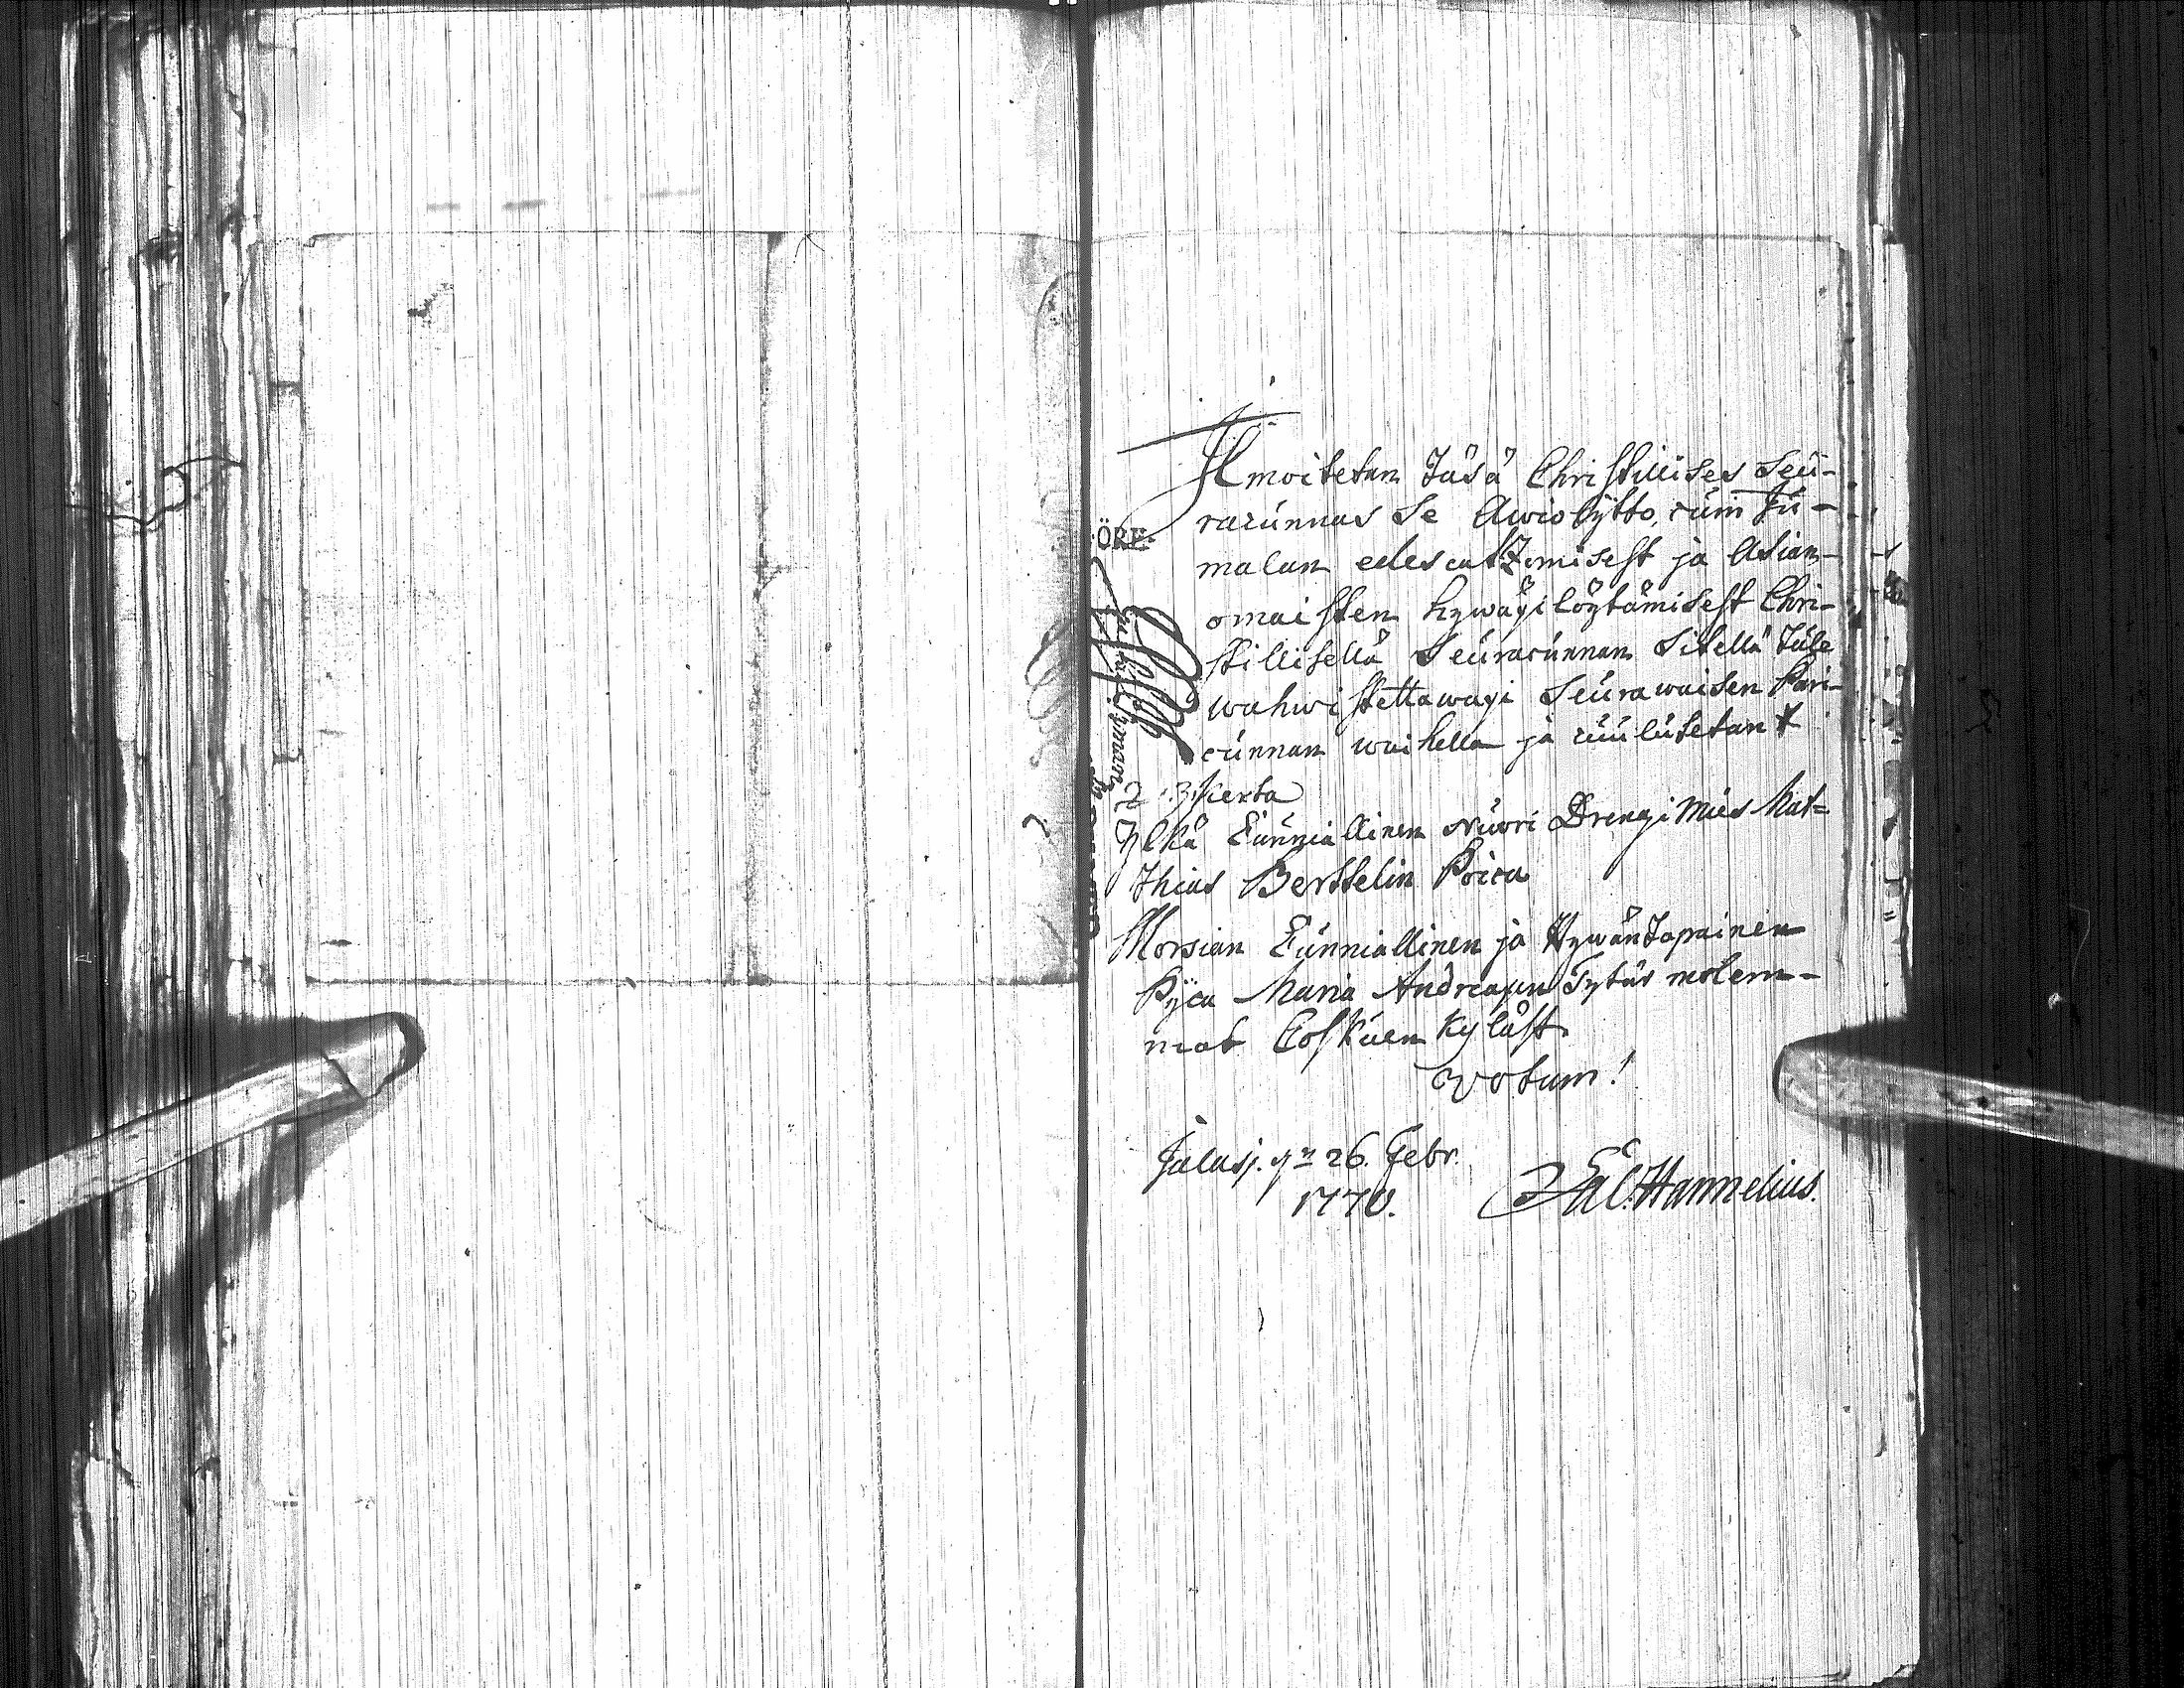 Ilmoitetan täsä Christillises Seu-
racunnas se Awiolijtto, cuin Ju-
malan edescatzomisest ja Asian-
omaisten hywäxi löytämisest Chri-
stillisellä Seuracunnan Sitellä tule
wahwistettawaxi Seurawaisen Pari-
cunnan waihella ja cuulutetan
2 3 kerta
Ylkä Cunniallinen Nuori Drengi Mies Mat=
thias Berttelin Poica
Morsian Cunniallinen ja Hywäntapainen
Pijca Maria Andreaxen Tytär molem-
mat Coskuen kyläst
votum!
Jalasj. 26. Febr.
1770. Hannelius.
ÖRE.